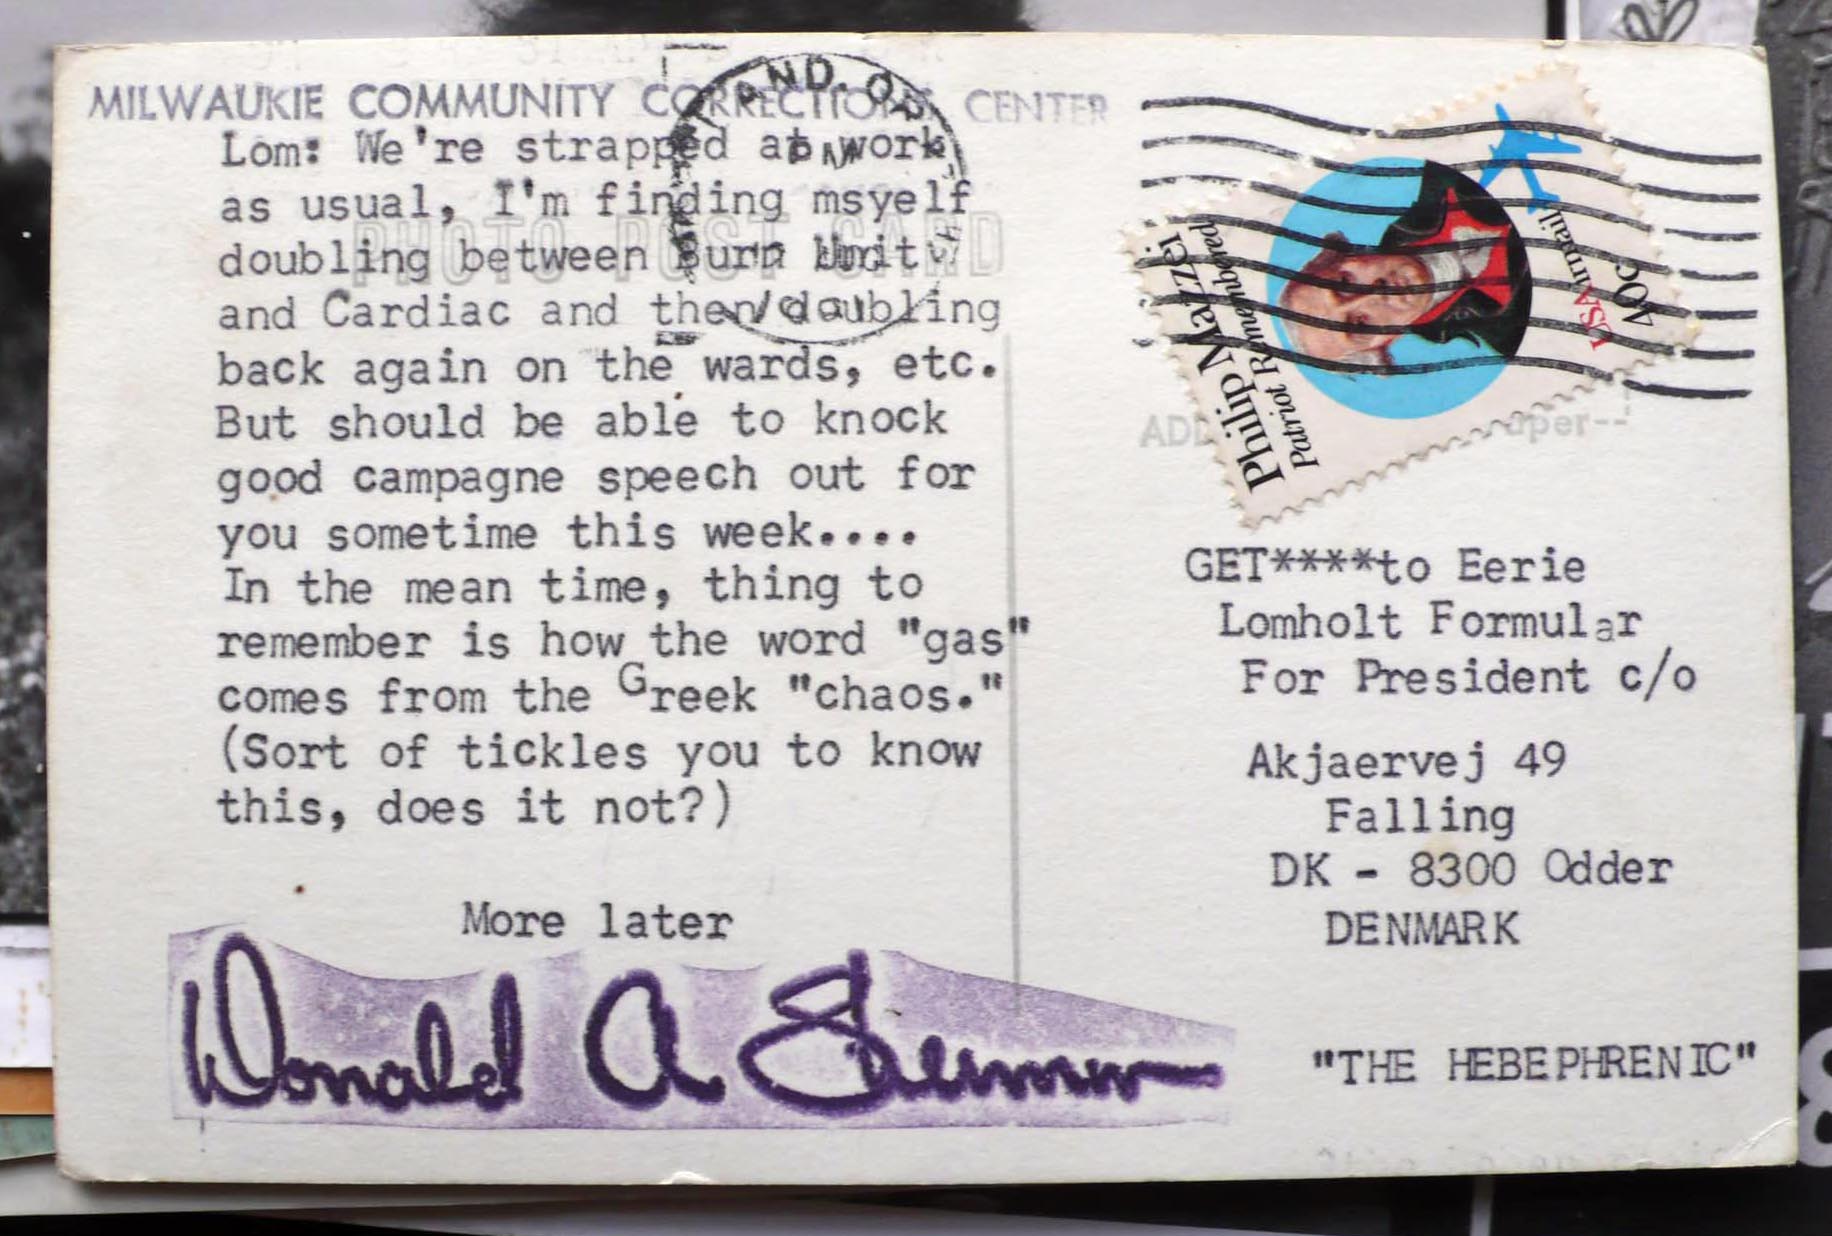 MILWAUKIE COMMUNITY CORRECTIONS CENTER
Lom: We're strapped at work
as usual, I'm finding msyelf
doubling between Burn Unit
and Cardiac and then doubling
back again on the wards, etc.
But should be able to knock
good campagne speech out for
you sometime this week....
In the mean time, thing to
remember is how the word "gas"
comes from the Greek "chaos."
(Sort of tickles you to know
this, does it not?)
More later
Donald A
PHOTO POST CARD
AND, OR
PM
Philip Mazzei
Patriot Remembered
USAirmail
40c
GET****to Eerie
Lomholt Formular
For President c/o
Akjaervej 49
Falling
DK - 8300 Odder
DENMARK
"THE HEBEPHRENIC"